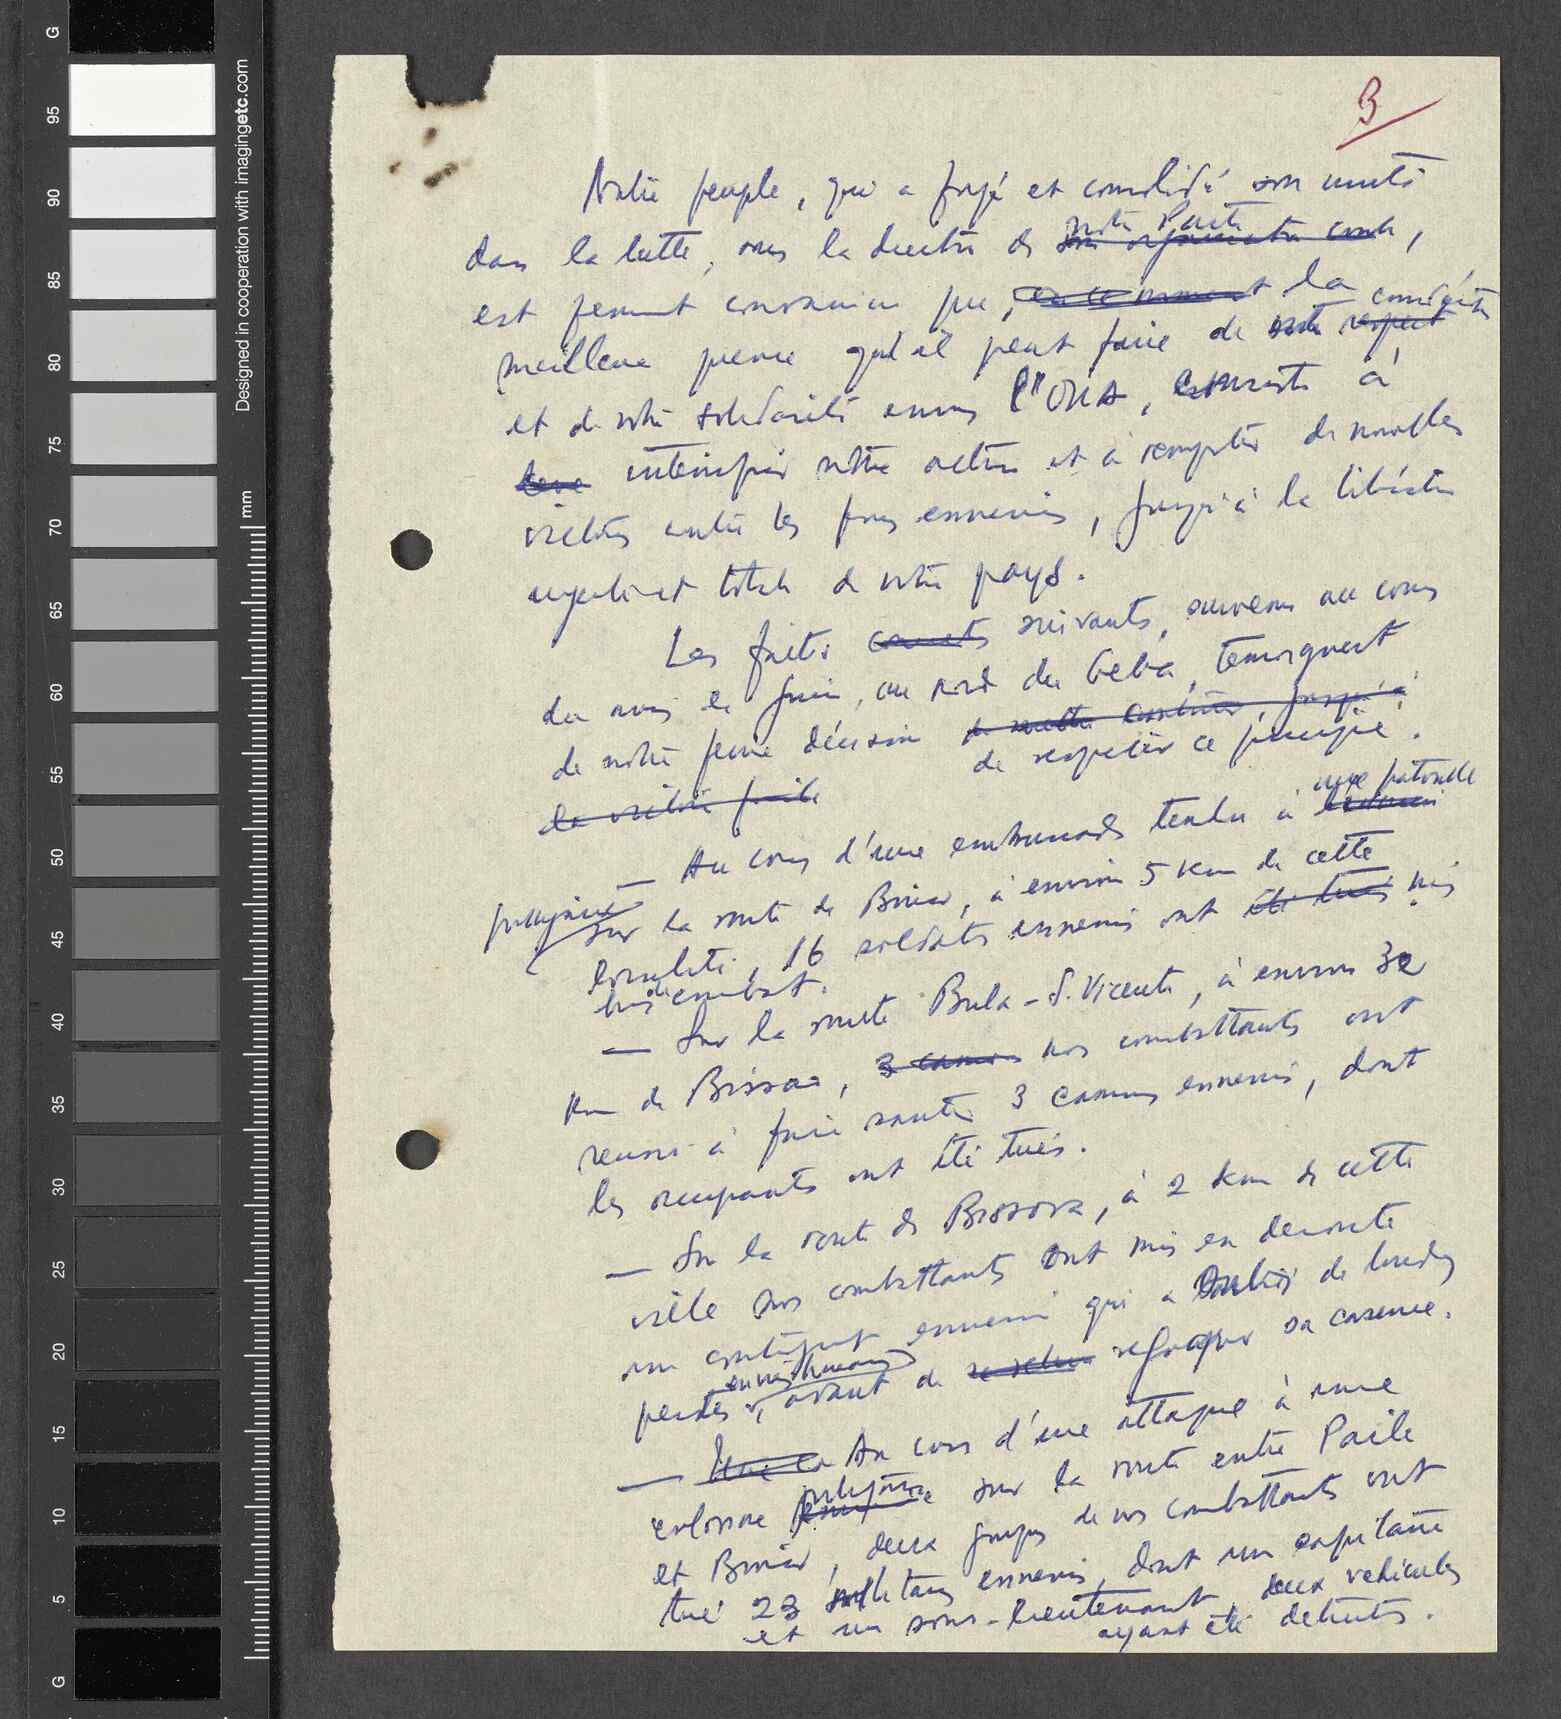 3
Notre peuple, qui a forgé et consolidé son unité
dans la lutte, sous la direction de notre Parti,
est ferment convaincu que, en ce moment la
meilleure preuve qu'il peut faire de respect considération
et de notre solidarité envers l'ONU, consiste à
intensifier notre action et à remporter de nouvelles
victoires contre les ennemis, jusqu'à la libération
totale de notre pays.
Les faits concrets suivants, survenus au cours
du mois de Juin, au nord du Geba, témoignent
de notre ferme décision
de respecter ce principe.
Au cours d'une embuscade tendue à une patrouille
portugaise sur la route de Binar, à environ 5 km de cette
localité, 16 soldats ennemis ont été tués mis
hors de combat.
— Sur la route Bula-S. Vicente, à environ 32
km de Bissau, 3 camions nos combattants ont
réussi à faire sauter 3 camions ennemis, dont
les occupants ont été tués.
— Sur la route de Bissora, à 2 km de cette
ville nos combattants ont mis en deroute
un contingent ennemi qui a subi de lourdes
pertes, avant de regagner sa caserne.
— Au cours d'une attaque à une
colonne portugaise sur la route entre Paile
et Binar, deux groupes de nos combattants ont
tué 23 militaires ennemis, dont un capitaine
et un sous-lieutenant, deux vehicules
ayant été detruits.
Designed in cooperation with imagingetc.com
mm
G
95
90
85
80
75
70
65
60
55
50
45
40
35
30
25
20
15
10
5
G